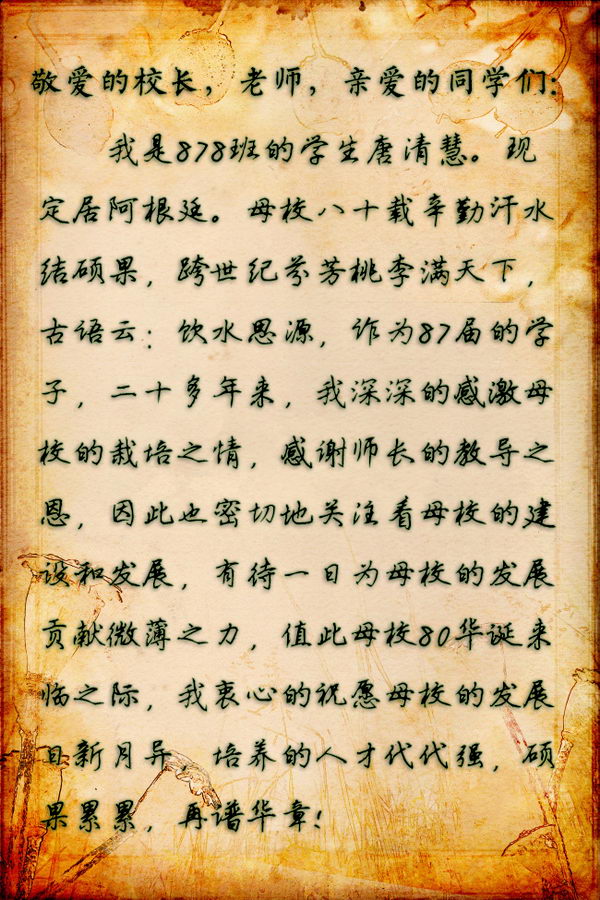 敬爱的校长，老师，亲爱的同学们：
我是878班的学生唐清慧。现
定居阿根廷。母校八十载辛勤汗水
结硕果，跨世纪芬芳桃李满天下，
古语云：饮水思源，作为87届的学
子，二十多年来，我深深的感激母
校的栽培之情，感谢师长的教导之
恩，因此也密切地关注着母校的建
设和发展，有待一日为母校的发展
贡献微薄之力，值此母校80华诞来
临之际，我衷心的祝愿母校的发展
日新月异，培养的人才代代强，硕
果累累，再谱华章！